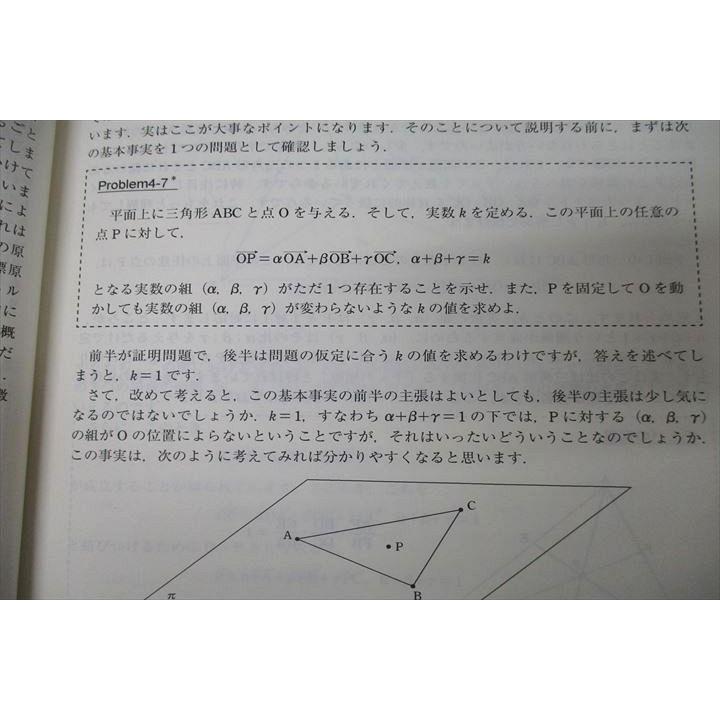 います．実はここが大事なポイントになります．そのことについて説明する前に，まずは次
の基本事実を１つの問題として確認しましょう．
Problem4-7*
平面上に三角形 ABC と点 O を与える．そして，実数 k を定める．この平面上の任意の
点 P に対して，
OP=αOA+βOB+γOC，α+β+γ=k
となる実数の組（α，β，γ）がただ１つ存在することを示せ．また，P を固定して O を動
かしても実数の組（α，β，γ）が変わらないような k の値を求めよ．
前半が証明問題で，後半は問題の仮定に合う k の値を求めるわけですが，答えを述べてし
まうと，k=1 です．
さて，改めて考えると，この基本事実の前半の主張はよいとしても，後半の主張は少し気に
なるのではないでしょうか．k=1，すなわち α+β+γ=1 の下では，P に対する（α，β，γ）
の組が O の位置によらないということですが，それはいったいどういうことなのでしょうか．
この事実は，次のように考えてみれば分かりやすくなると思います．
C
A
P
B
π